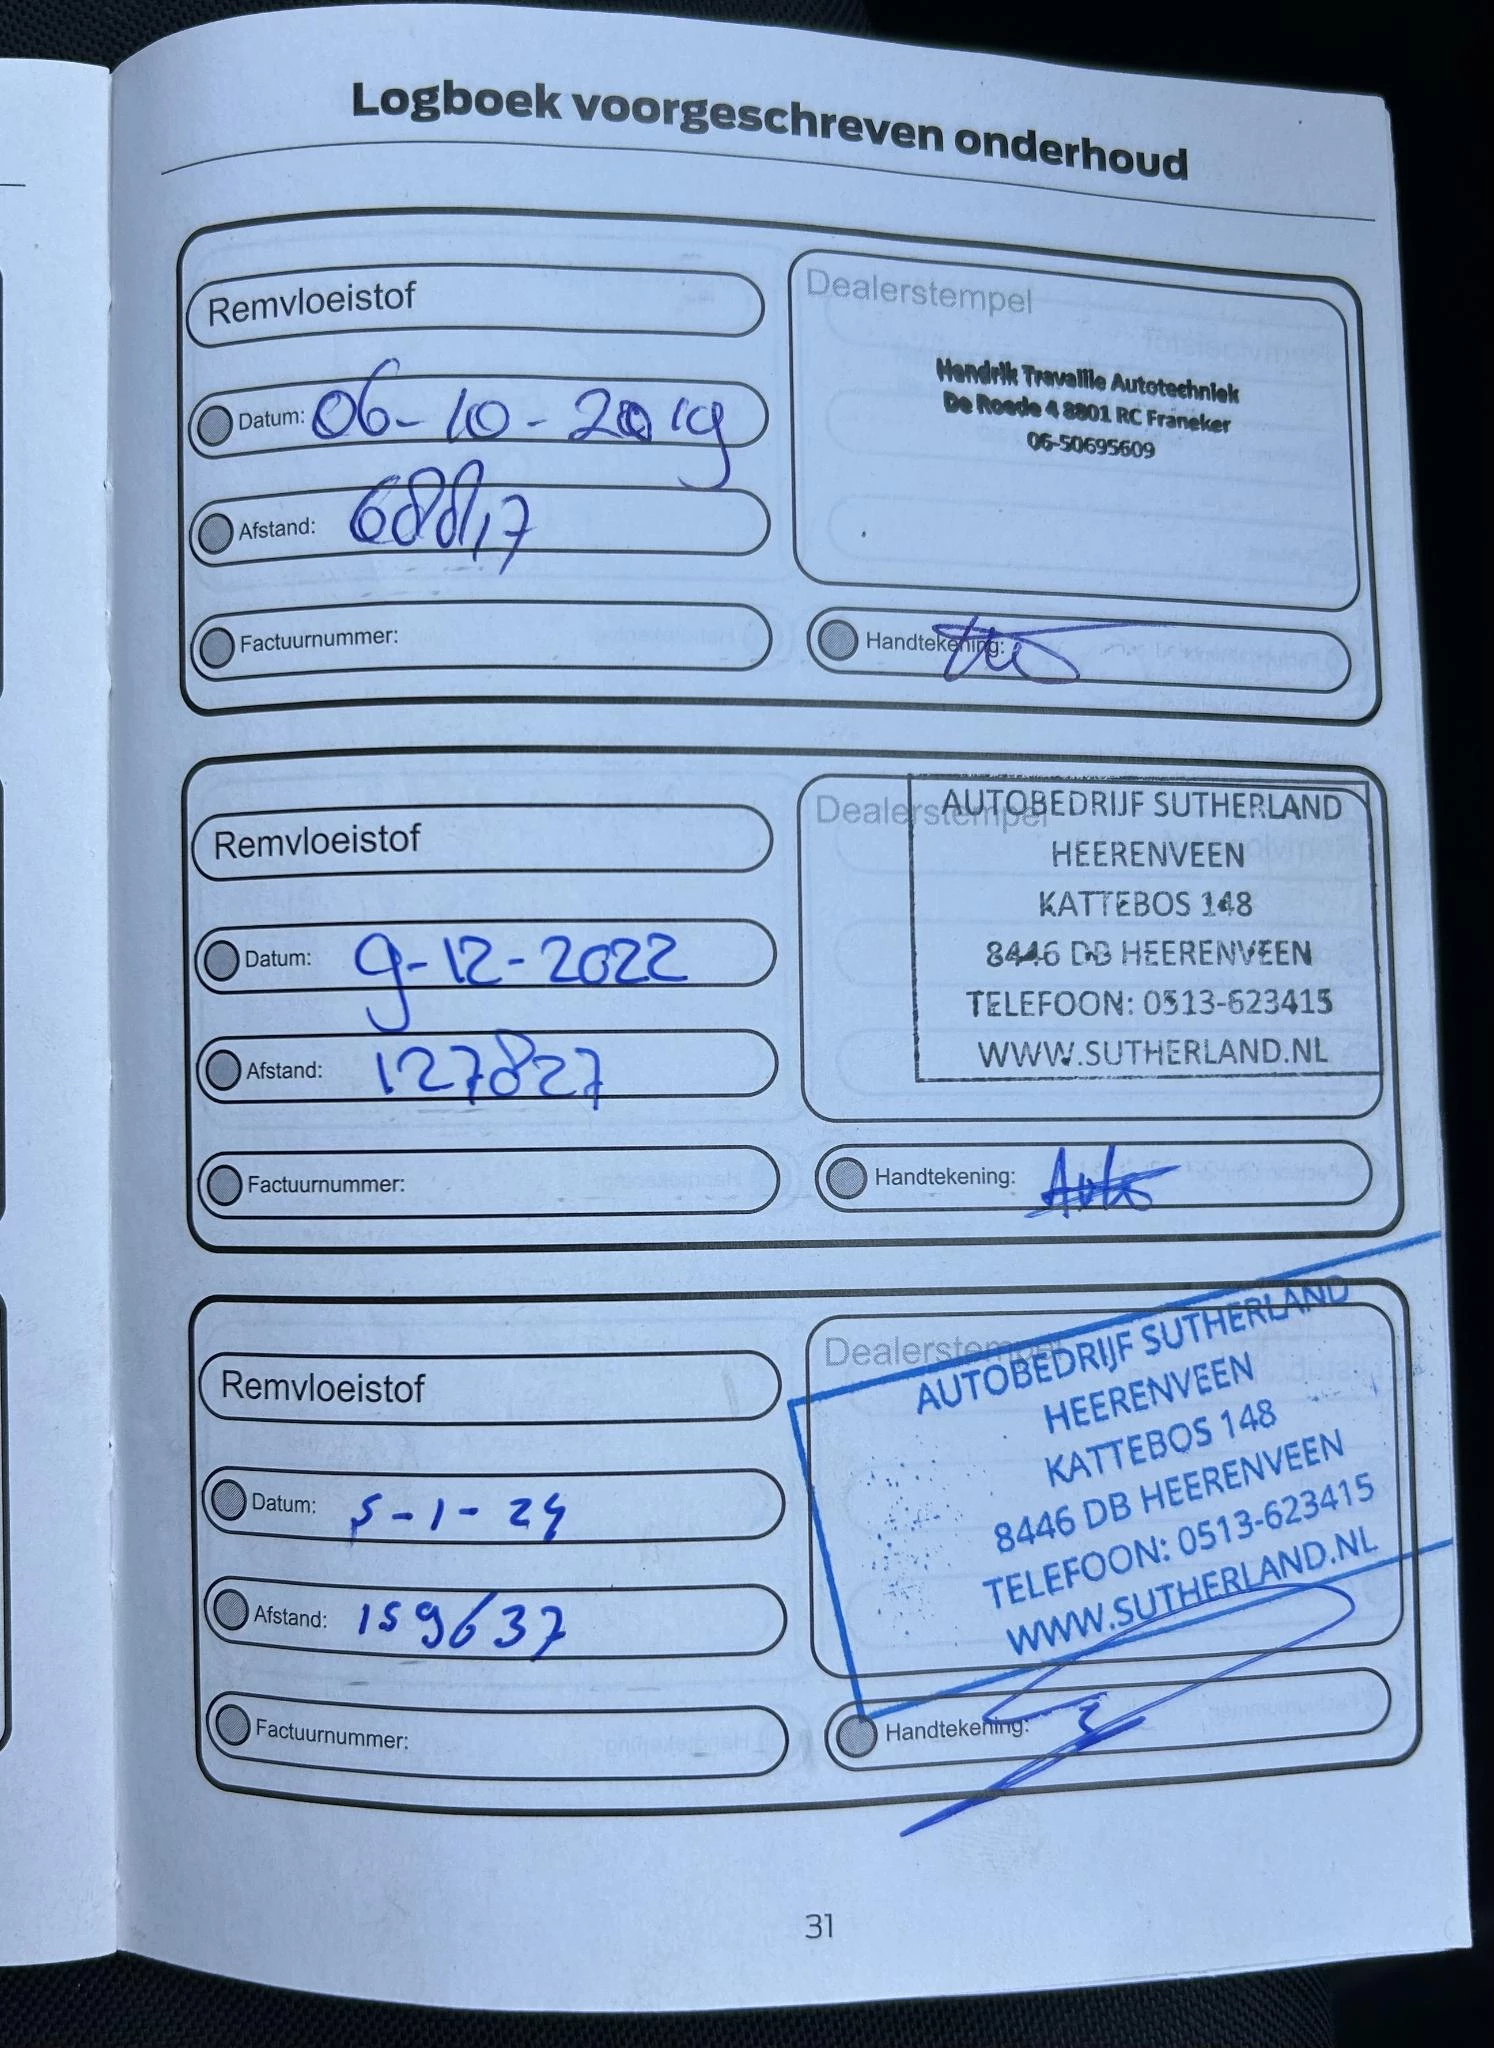 Logboek voorgeschreven onderhoud
Remvloeistof
Dealerstempel
Hendrik Travaille Autotechniek
De Roede 4 8801 RC Franeker
06-50695609
Datum: 06-10-2019
Afstand: 68817
Factuurnummer:
Handtekening:
Remvloeistof
Dealerstempel
AUTOBEDRIJF SUTHERLAND
HEERENVEEN
KATTEBOS 148
8446 DB HEERENVEEN
TELEFOON: 0513-623415
WWW.SUTHERLAND.NL
Datum: 9-12-2022
Afstand: 127827
Factuurnummer:
Handtekening:
Remvloeistof
Dealerstempel
AUTOBEDRIJF SUTHERLAND
HEERENVEEN
KATTEBOS 148
8446 DB HEERENVEEN
TELEFOON: 0513-623415
WWW.SUTHERLAND.NL
Datum: 5-1-24
Afstand: 159637
Factuurnummer:
Handtekening:
31